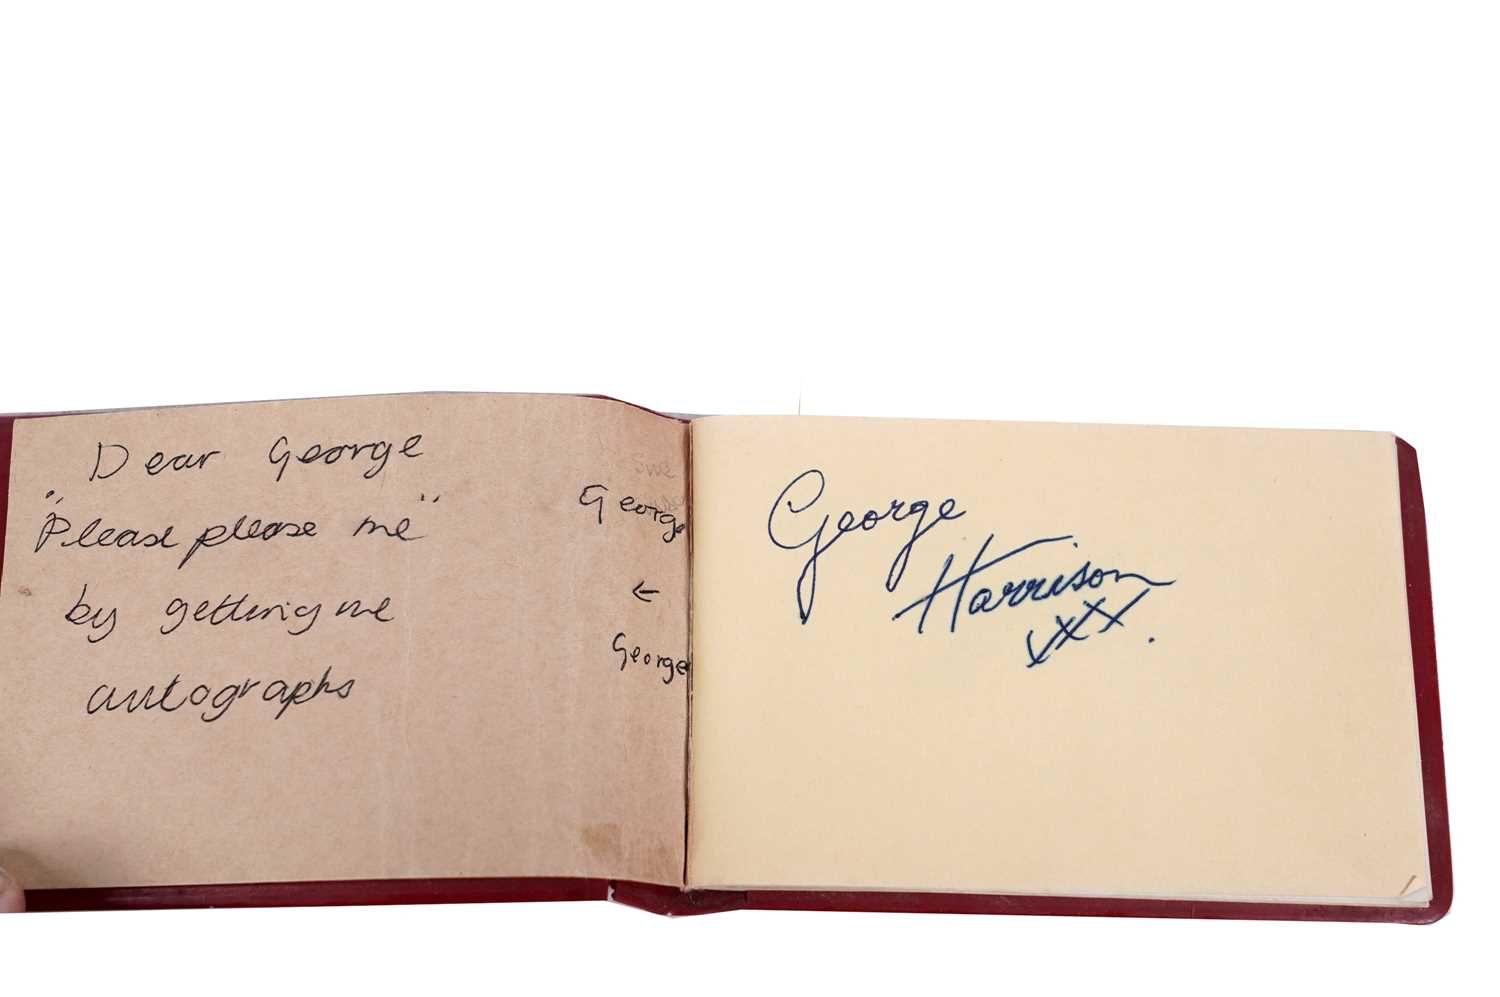 Dear George
"Please please me"
by getting me
autographs
George
←
George
George
Harrison
xxx.